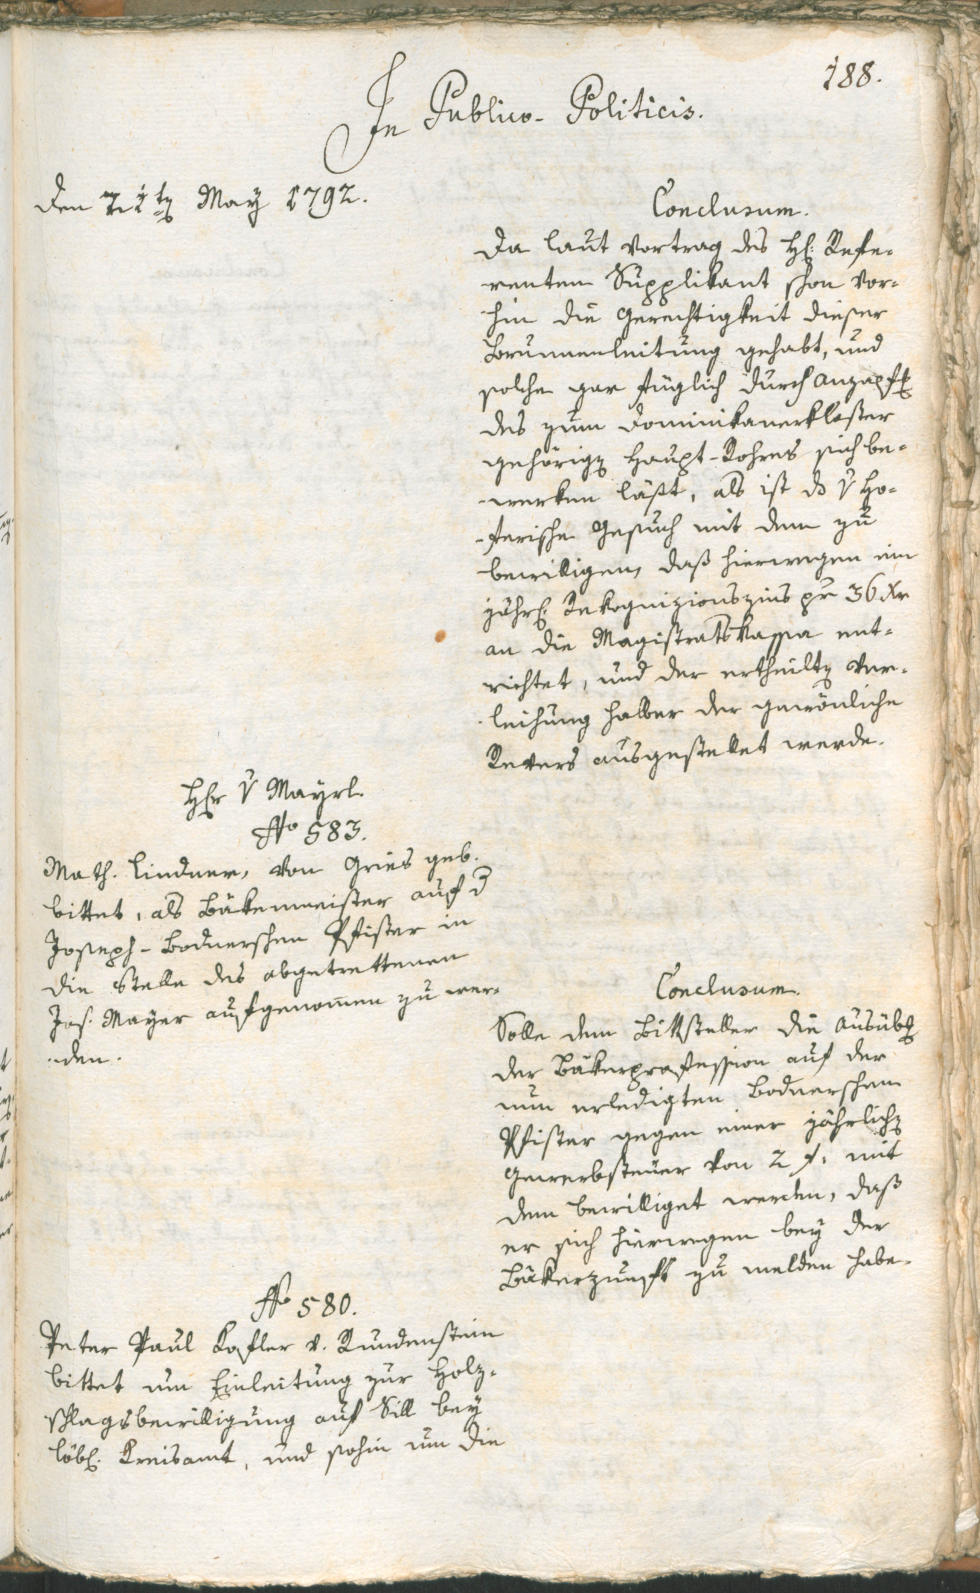 188.
In Publico-Politicis.
den 21ten May 1792.
Conclusum.
Da laut Vortrag des H: Refe-
renten Supplikant schon vor-
hin die Gerechtigkeit dieser
Brunnenleitung gehabt, und
solche gar füglich durch Anzapfg
des zum Dominikanerkloster
gehörigen Haupt-Rohres sich be-
werken läßt, als ist das v Ho-
ferische Gesuch mit dem zu
bewilligen, daß hierwegen ein
jährl: Rekognizionszins pr 36 xr
an die Magistratskassa ent-
richtet, und der ertheilten Ver-
leihung halber der gewönliche
Revers ausgestellet werde.
Herr v Mayrl.
No 583.
Math. Lindner, von Gries geb.
bittet, als Bäkenmeister auf d
Joseph-Bodnerschen Pfister in
die Stelle des abgetrettenen
Jos. Mayer aufgenommen zu wer-
den.
Conclusum.
Solle dem Bittsteller die Ausübg
der Bäkerprofession auf der
nun erledigten Bodnerschen
Pfister gegen einer jährlichen
Gewerbsteuer von 2 f. mit
dem bewilliget werden, daß
er sich hierwegen bey der
Bäkerzunft zu melden habe.
No 580.
Peter Paul Kofler v. Rundenstein
bittet um Einleitung zur Holz-
schlagsbewilligung auf Sill bey
löbl: Kreisamt, und sohin um die